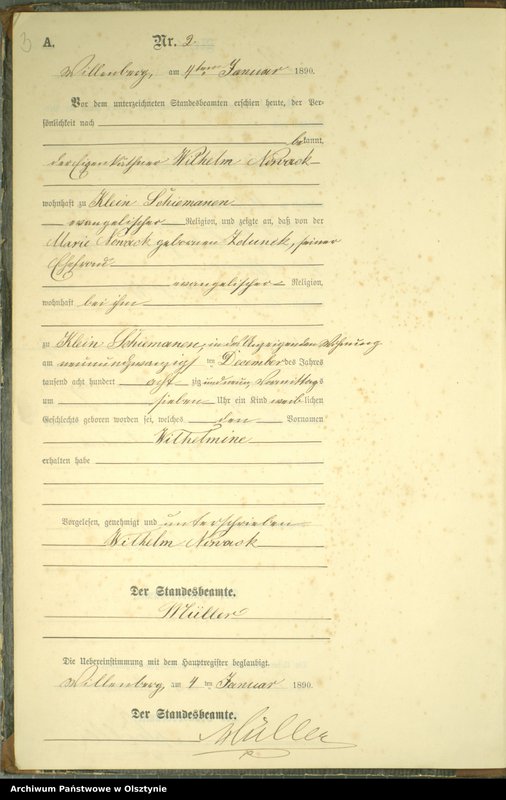 3
A.
Nr. 2.
Willenberg, am 4ten Januar 1890.
Vor dem unterzeichneten Standesbeamten erschien heute, der Per-
sönlichkeit nach
bekannt,
der Eigenkäthner Wilhelm Nowack
wohnhaft zu Klein Schiemanen
evangelischer Religion, und zeigte an, daß von der
Marie Nowack gebornen Zdunek, seiner
Ehefrau
evangelischer Religion,
wohnhaft bei ihm
zu Klein Schiemanen, in der Wohnung
am neunundzwanzigsten December des Jahres
tausend acht hundert acht zig und neun Vormittags
um sieben Uhr ein Kind weiblichen
Geschlechts geboren worden sei, welches den Vornamen
Wilhelmine
erhalten habe
Vorgelesen, genehmigt und unterschrieben
Wilhelm Nowack
Der Standesbeamte.
Müller
Die Uebereinstimmung mit dem Hauptregister beglaubigt.
Willenberg, am 4 ten Januar 1890.
Der Standesbeamte.
Müller
Archiwum Państwowe w Olsztynie